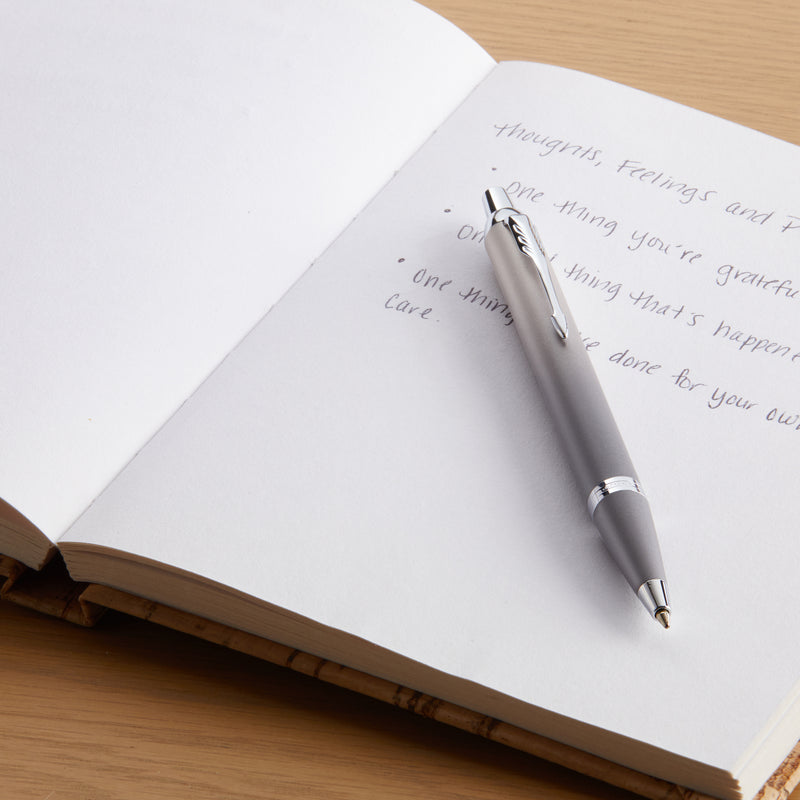 thoughts, Feelings and P
• One thing you're gratefu
• On thing that's happene
• One thing done for your own
care.